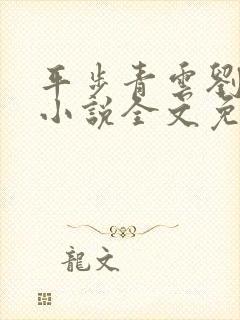 平步青雲劉
小説全文免
龍文